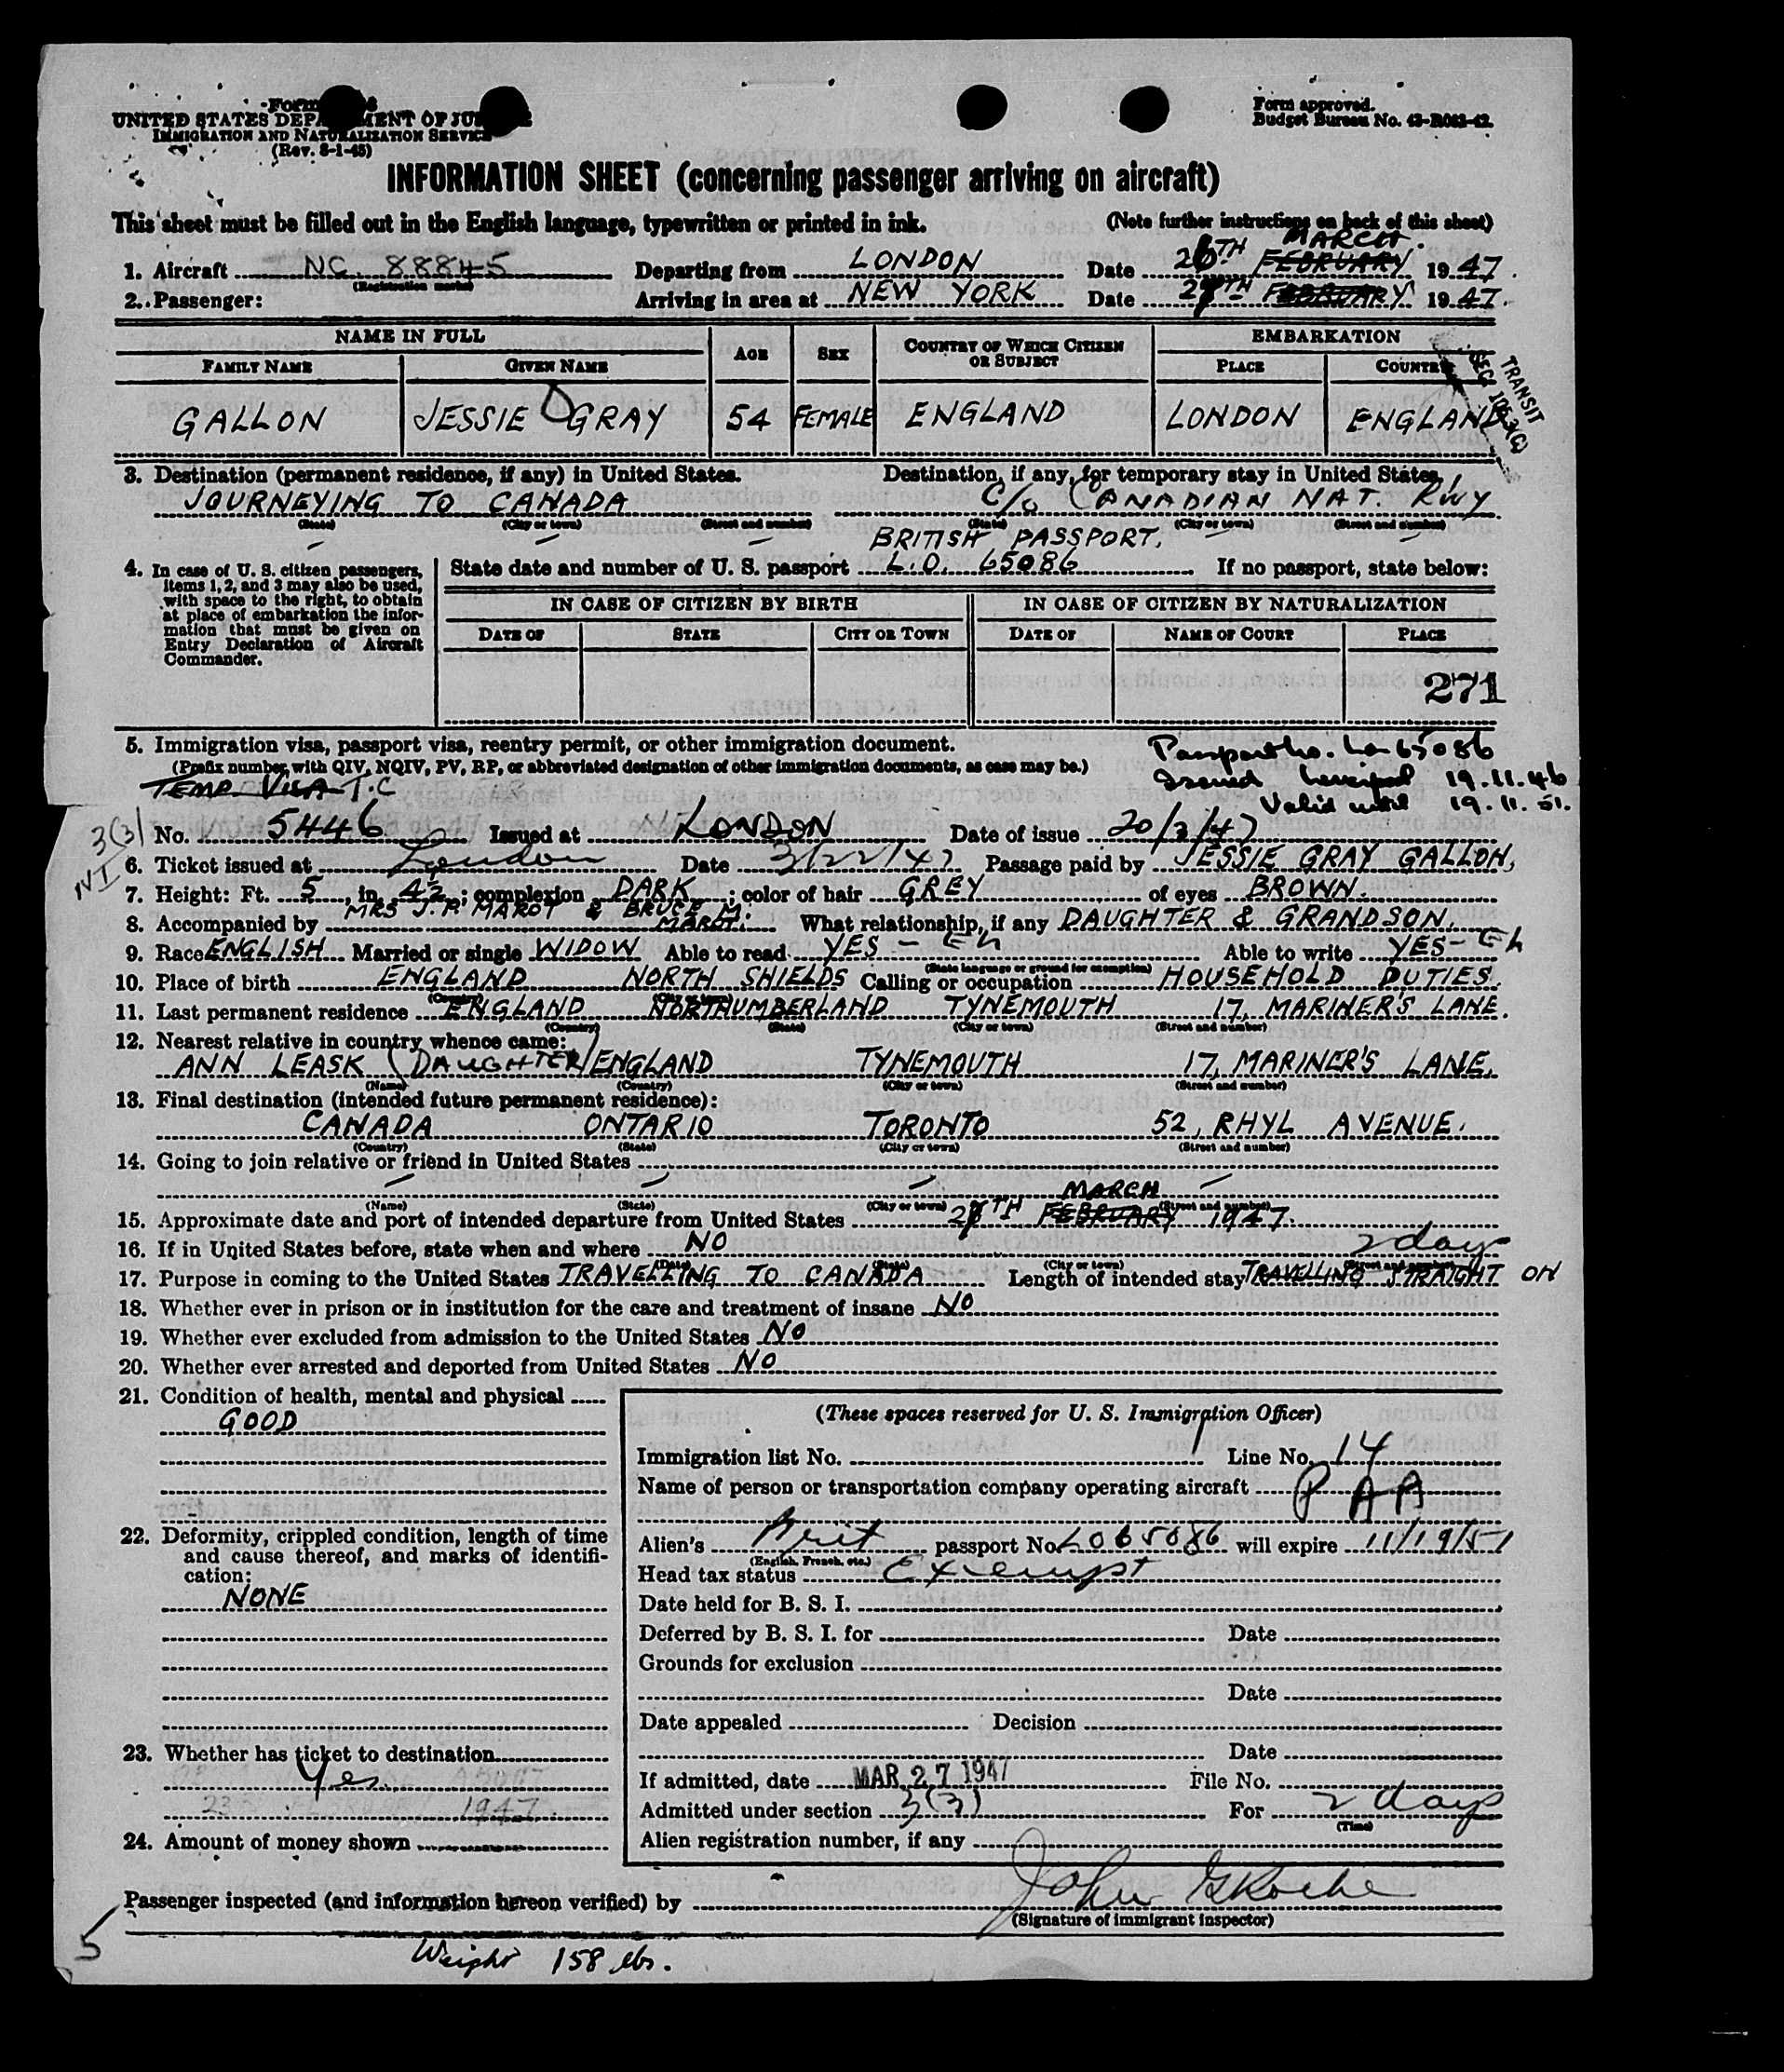 Form
UNITED STATES DEPARTMENT OF JUSTICE
IMMIGRATION AND NATURALIZATION SERVICE
(Rev. 8-1-45)
Form approved.
Budget Bureau No. 43-R083-42.
INFORMATION SHEET (concerning passenger arriving on aircraft)
This sheet must be filled out in the English language, typewritten or printed in ink. (Note further instructions on back of this sheet)
MARCH.
1. Aircraft NC. 88845 Departing from LONDON Date 26TH FEBRUARY 1947.
(Registration marks)
2. Passenger: Arriving in area at NEW YORK Date 27TH FEBRUARY 1947.
NAME IN FULL AGE SEX COUNTRY OF WHICH CITIZEN OR SUBJECT EMBARKATION
FAMILY NAME GIVEN NAME PLACE COUNTRY
TRANSIT
GALLON JESSIE GRAY 54 FEMALE ENGLAND LONDON ENGLAND
3. Destination (permanent residence, if any) in United States. Destination, if any, for temporary stay in United States.
JOURNEYING TO CANADA C/o CANADIAN NAT. RWY
(State) (City or town) (Street and number) (State) (City or town) (Street and number)
BRITISH PASSPORT.
4. In case of U. S. citizen passengers, items 1, 2, and 3 may also be used, with space to the right, to obtain at place of embarkation the information that must be given on Entry Declaration of Aircraft Commander.
State date and number of U. S. passport L.O. 65086 If no passport, state below:
IN CASE OF CITIZEN BY BIRTH IN CASE OF CITIZEN BY NATURALIZATION
DATE OF STATE CITY OR TOWN DATE OF NAME OF COURT PLACE
271
5. Immigration visa, passport visa, reentry permit, or other immigration document.
(Prefix number with QIV, NQIV, PV, RP, or abbreviated designation of other immigration documents, as case may be.)
Passport No. Lo 65086
Issued Liverpool 19.11.46
Valid until 19.11.51.
TEMP. VISA T.C
3(3)
NI
No. 5446 Issued at LONDON Date of issue 20/3/47
6. Ticket issued at London Date 3/22/47 Passage paid by JESSIE GRAY GALLON.
7. Height: Ft. 5, in. 4½; complexion DARK; color of hair GREY of eyes BROWN.
8. Accompanied by MRS J.P. MAROT & BRUCE M. MAROT. What relationship, if any DAUGHTER & GRANDSON.
9. Race ENGLISH Married or single WIDOW Able to read YES - Eh Able to write YES - Eh
(State language or ground for exemption)
10. Place of birth ENGLAND NORTH SHIELDS Calling or occupation HOUSEHOLD DUTIES.
(Country) (City or town)
11. Last permanent residence ENGLAND NORTHUMBERLAND TYNEMOUTH 17, MARINER'S LANE.
(Country) (State) (City or town) (Street and number)
12. Nearest relative in country whence came:
ANN LEASK (DAUGHTER) ENGLAND TYNEMOUTH 17, MARINER'S LANE.
(Name) (Country) (City or town) (Street and number)
13. Final destination (intended future permanent residence):
CANADA ONTARIO TORONTO 52, RHYL AVENUE.
(Country) (State) (City or town) (Street and number)
14. Going to join relative or friend in United States
(Name) (State) (City or town) (Street and number)
MARCH
15. Approximate date and port of intended departure from United States 27TH FEBRUARY 1947.
16. If in United States before, state when and where NO
(Date) (State) (City or town) (Street and number)
2 days
17. Purpose in coming to the United States TRAVELLING TO CANADA Length of intended stay TRAVELLING STRAIGHT ON
18. Whether ever in prison or in institution for the care and treatment of insane NO
19. Whether ever excluded from admission to the United States NO
20. Whether ever arrested and deported from United States NO
21. Condition of health, mental and physical
GOOD
22. Deformity, crippled condition, length of time and cause thereof, and marks of identification:
NONE
23. Whether has ticket to destination
Yes
1947
24. Amount of money shown
(These spaces reserved for U. S. Immigration Officer)
Immigration list No. 1 Line No. 14
Name of person or transportation company operating aircraft PAA
Alien's Brit passport No. LO65086 will expire 11/19/51
(English, French, etc.)
Head tax status Exempt
Date held for B. S. I.
Deferred by B. S. I. for Date
Grounds for exclusion
Date
Date appealed Decision
Date
If admitted, date MAR 27 1947 File No.
Admitted under section 3(3) For 2 days
(Time)
Alien registration number, if any
Passenger inspected (and information hereon verified) by John
(Signature of immigrant inspector)
5
Weight 158 lbs.